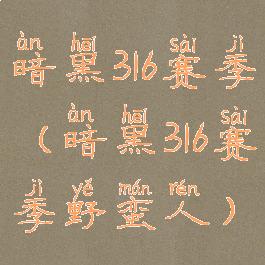 àn hēi sài jì
暗黑316赛季
àn hēi sài
(暗黑316赛
jì yě mán rén
季野蛮人)